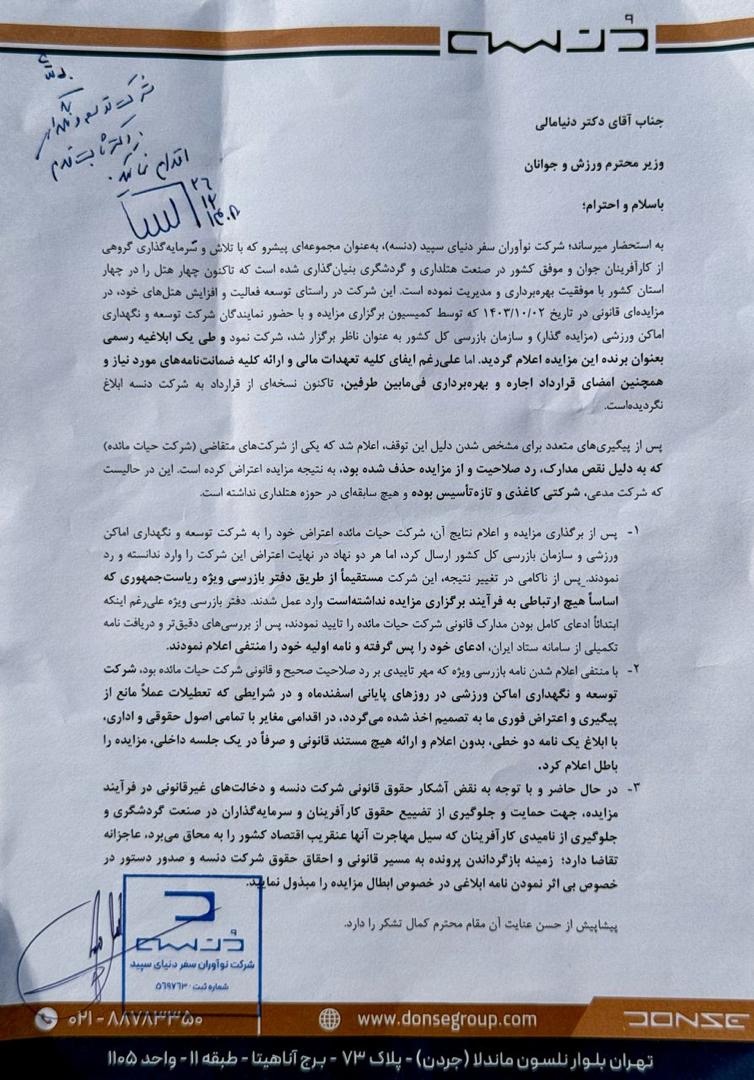 دنسه
شرکت توسعه و نگهداری
اقدام نمائید.
۲۶
۱۲
جناب آقای دکتر دنیامالی
وزیر محترم ورزش و جوانان
باسلام و احترام؛
به استحضار میرساند؛ شرکت نوآوران سفر دنیای سپید (دنسه)، به‌عنوان مجموعه‌ای پیشرو که با تلاش و سرمایه‌گذاری گروهی
از کارآفرینان جوان و موفق کشور در صنعت هتلداری و گردشگری بنیان‌گذاری شده است که تاکنون چهار هتل را در چهار
استان کشور با موفقیت بهره‌برداری و مدیریت نموده است. این شرکت در راستای توسعه فعالیت و افزایش هتل‌های خود، در
مزایده‌ای قانونی در تاریخ ۱۴۰۳/۱۰/۰۲ که توسط کمیسیون برگزاری مزایده و با حضور نمایندگان شرکت توسعه و نگهداری
اماکن ورزشی (مزایده گذار) و سازمان بازرسی کل کشور به عنوان ناظر برگزار شد، شرکت نمود و طی یک ابلاغیه رسمی
بعنوان برنده این مزایده اعلام گردید. اما علی‌رغم ایفای کلیه تعهدات مالی و ارائه کلیه ضمانت‌نامه‌های مورد نیاز و
همچنین امضای قرارداد اجاره و بهره‌برداری فی‌مابین طرفین، تاکنون نسخه‌ای از قرارداد به شرکت دنسه ابلاغ
نگردیده‌است.
پس از پیگیری‌های متعدد برای مشخص شدن دلیل این توقف، اعلام شد که یکی از شرکت‌های متقاضی (شرکت حیات مائده)
که به دلیل نقص مدارک، رد صلاحیت و از مزایده حذف شده بود، به نتیجه مزایده اعتراض کرده است. این در حالیست
که شرکت مدعی، شرکتی کاغذی و تازه‌تأسیس بوده و هیچ سابقه‌ای در حوزه هتلداری نداشته است.
۱- پس از برگذاری مزایده و اعلام نتایج آن، شرکت حیات مائده اعتراض خود را به شرکت توسعه و نگهداری اماکن
ورزشی و سازمان بازرسی کل کشور ارسال کرد، اما هر دو نهاد در نهایت اعتراض این شرکت را وارد ندانسته و رد
نمودند. پس از ناکامی در تغییر نتیجه، این شرکت مستقیماً از طریق دفتر بازرسی ویژه ریاست‌جمهوری که
اساساً هیچ ارتباطی به فرآیند برگزاری مزایده نداشته‌است وارد عمل شدند. دفتر بازرسی ویژه علی‌رغم اینکه
ابتدائاً ادعای کامل بودن مدارک قانونی شرکت حیات مائده را تایید نمودند، پس از بررسی‌های دقیق‌تر و دریافت نامه
تکمیلی از سامانه ستاد ایران، ادعای خود را پس گرفته و نامه اولیه خود را منتفی اعلام نمودند.
۲- با منتفی اعلام شدن نامه بازرسی ویژه که مهر تاییدی بر رد صلاحیت صحیح و قانونی شرکت حیات مائده بود، شرکت
توسعه و نگهداری اماکن ورزشی در روزهای پایانی اسفندماه و در شرایطی که تعطیلات عملاً مانع از
پیگیری و اعتراض فوری ما به تصمیم اخذ شده می‌گردد، در اقدامی مغایر با تمامی اصول حقوقی و اداری،
با ابلاغ یک نامه دو خطی، بدون اعلام و ارائه هیچ مستند قانونی و صرفاً در یک جلسه داخلی، مزایده را
باطل اعلام کرد.
۳- در حال حاضر و با توجه به نقض آشکار حقوق قانونی شرکت دنسه و دخالت‌های غیرقانونی در فرآیند
مزایده، جهت حمایت و جلوگیری از تضییع حقوق کارآفرینان و سرمایه‌گذاران در صنعت گردشگری و
جلوگیری از ناامیدی کارآفرینان که سیل مهاجرت آنها عنقریب اقتصاد کشور را به محاق می‌برد، عاجزانه
تقاضا دارد؛ زمینه بازگرداندن پرونده به مسیر قانونی و احقاق حقوق شرکت دنسه و صدور دستور در
خصوص بی اثر نمودن نامه ابلاغی در خصوص ابطال مزایده را مبذول نمایید.
پیشاپیش از حسن عنایت آن مقام محترم کمال تشکر را دارد.
دنسه
شرکت نوآوران سفر دنیای سپید
شماره ثبت: ۵۶۹۷۶۳
۰۲۱-۸۸۷۸۳۳۵۰
www.donsegroup.com
DONSE
تهران بلوار نلسون ماندلا (جردن) - پلاک ۷۳ - برج آناهیتا - طبقه ۱۱ - واحد ۱۱۰۵